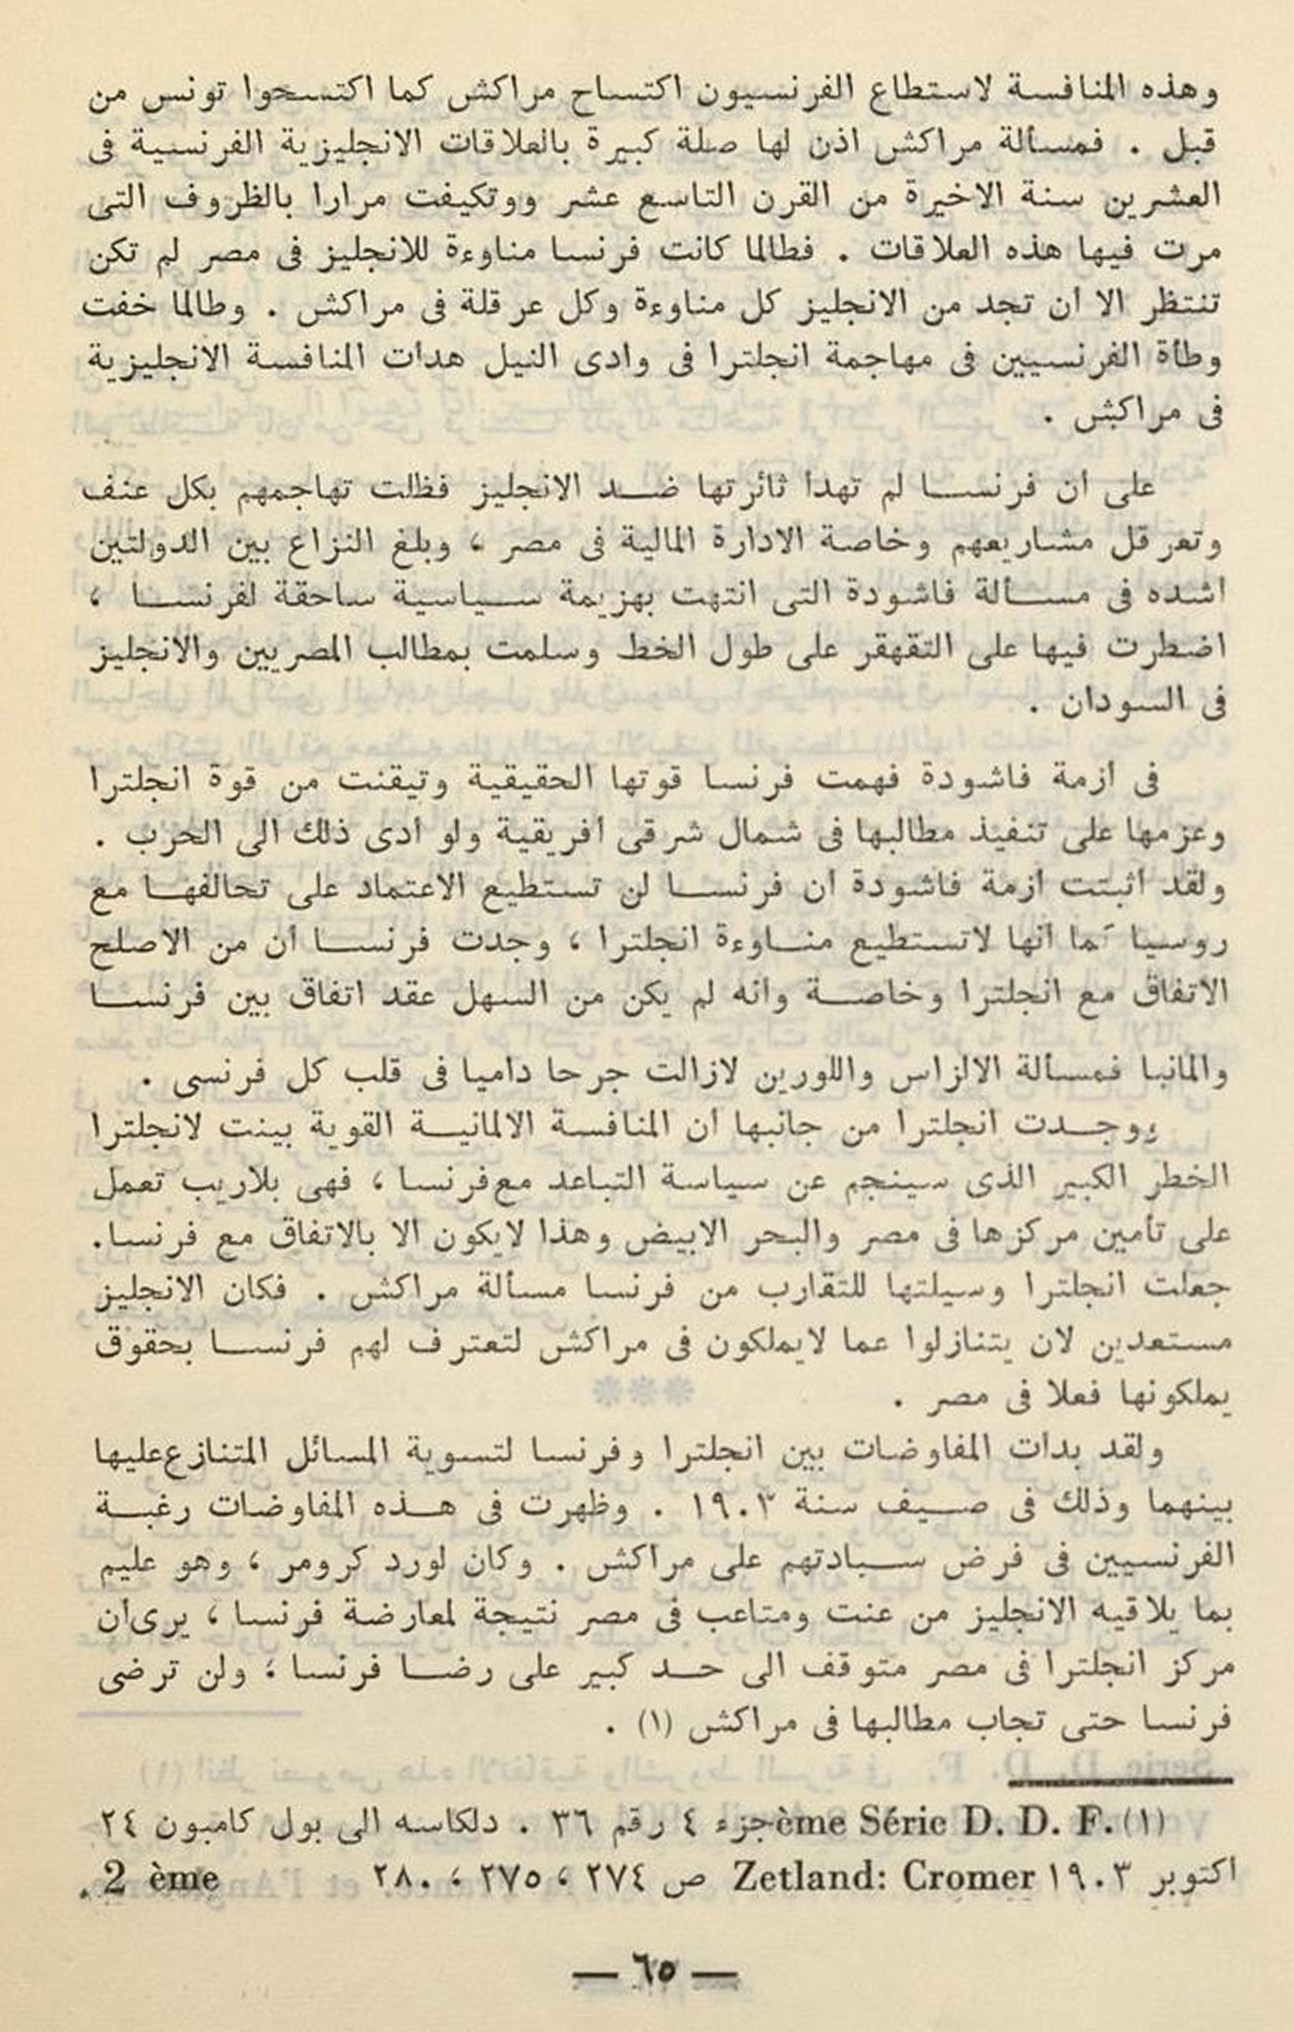 وهذه المنافسة لاستطاع الفرنسيون اكتساح مراكش كما اكتسحوا تونس من
قبل . فمسألة مراكش اذن لها صلة كبيرة بالعلاقات الانجليزية الفرنسية فى
العشرين سنة الاخيرة من القرن التاسع عشر ووتكيفت مرارا بالظروف التى
مرت فيها هذه العلاقات . فطالما كانت فرنسا مناوءة للانجليز فى مصر لم تكن
تنتظر الا أن تجد من الانجليز كل مناوءة وكل عرقلة فى مراكش . وطالما خفت
وطأة الفرنسيين فى مهاجمة انجلترا فى وادى النيل هدأت المنافسة الانجليزية
فى مراكش .
على أن فرنسا لم تهدأ ثائرتها ضد الانجليز فظلت تهاجمهم بكل عنف
وتعرقل مشاريعهم وخاصة الادارة المالية فى مصر ، وبلغ النزاع بين الدولتين
أشده فى مسألة فاشودة التى انتهت بهزيمة سياسية ساحقة لفرنسا ،
اضطرت فيها على التقهقر على طول الخط وسلمت بمطالب المصريين والانجليز
فى السودان .
فى أزمة فاشودة فهمت فرنسا قوتها الحقيقية وتيقنت من قوة انجلترا
وعزمها على تنفيذ مطالبها فى شمال شرقى أفريقية ولو أدى ذلك الى الحرب .
ولقد أثبتت أزمة فاشودة أن فرنسا لن تستطيع الاعتماد على تحالفها مع
روسيا كما أنها لاتستطيع مناوءة انجلترا ، وجدت فرنسا أن من الاصلح
الاتفاق مع انجلترا وخاصة وأنه لم يكن من السهل عقد اتفاق بين فرنسا
والمانيا فمسألة الالزاس واللورين لازالت جرحا داميا فى قلب كل فرنسى .
ووجدت انجلترا من جانبها أن المنافسة الالمانية القوية بينت لانجلترا
الخطر الكبير الذى سينجم عن سياسة التباعد مع فرنسا ، فهى بلاريب تعمل
على تأمين مركزها فى مصر والبحر الابيض وهذا لايكون الا بالاتفاق مع فرنسا.
جعلت انجلترا وسيلتها للتقارب من فرنسا مسألة مراكش . فكان الانجليز
مستعدين لان يتنازلوا عما لايملكون فى مراكش لتعترف لهم فرنسا بحقوق
يملكونها فعلا فى مصر .
ولقد بدأت المفاوضات بين انجلترا وفرنسا لتسوية المسائل المتنازع عليها
بينهما وذلك فى صيف سنة ١٩٠٣ . وظهرت فى هذه المفاوضات رغبة
الفرنسيين فى فرض سيادتهم على مراكش . وكان لورد كرومر ، وهو عليم
بما يلاقيه الانجليز من عنت ومتاعب فى مصر نتيجة لمعارضة فرنسا ، يرى أن
مركز انجلترا فى مصر متوقف الى حد كبير على رضا فرنسا ؛ ولن ترضى
فرنسا حتى تجاب مطالبها فى مراكش (١) .
(١) ème Série D. D. F. جزء ٤ رقم ٣٦ . دلكاسه الى بول كامبون ٢٤
اكتوبر ١٩٠٣ Zetland: Cromer ص ٢٧٤ ، ٢٧٥ ، ٢٨٠ 2 ème .
— ٦٥ —